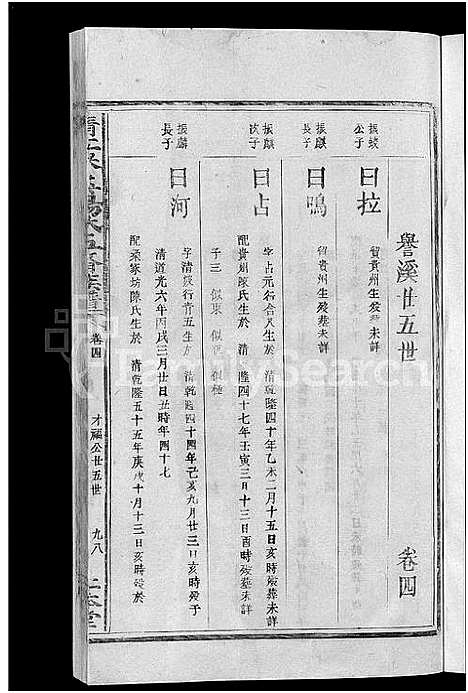 譽溪廿五世 卷四
振鮫公子
曰拉
貿貴州生殁墓未詳
振麒長子
曰鳴
貿貴州生殁墓未詳
振麒次子
曰占
字占元名合 生於 清 隆四十年乙未二月十五日亥時殁葬未詳
配貴州 氏生於 清 隆四十七年壬寅三月十三日酉時殁墓未詳
子三 似東 似 似種
振麟長子
曰河
字清 行青五生於 清乾隆四十四年己亥九月廿三日亥時殁于
清道光六年丙戌三月廿日丑時年四十七
配 家坊陳氏生於 清乾隆五十五年庚戌十月十三日亥時殁於
卷四
才福公廿五世
九八
FamilySearch